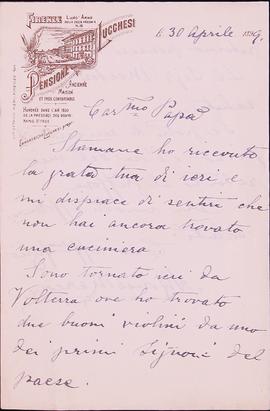 FIRENZE
LUNG' ARNO
PENSIONE
LUCCHESI
ANCIENNE
MAISON
ET TRÈS COMFORTABLE
HONORÉE DANS L'AN 1890
DE LA PRESENCE DES
ROYALE
li 30 Aprile 189
Car.mo Papà
Stamane ho ricevuto
la grata tua di ieri e
mi dispiace di sentire che
non hai ancora trovato
una cuciniera
Sono tornato ieri da
Volterra ove ho trovato
due buoni violini da uno
dei primi Signori del
paese.